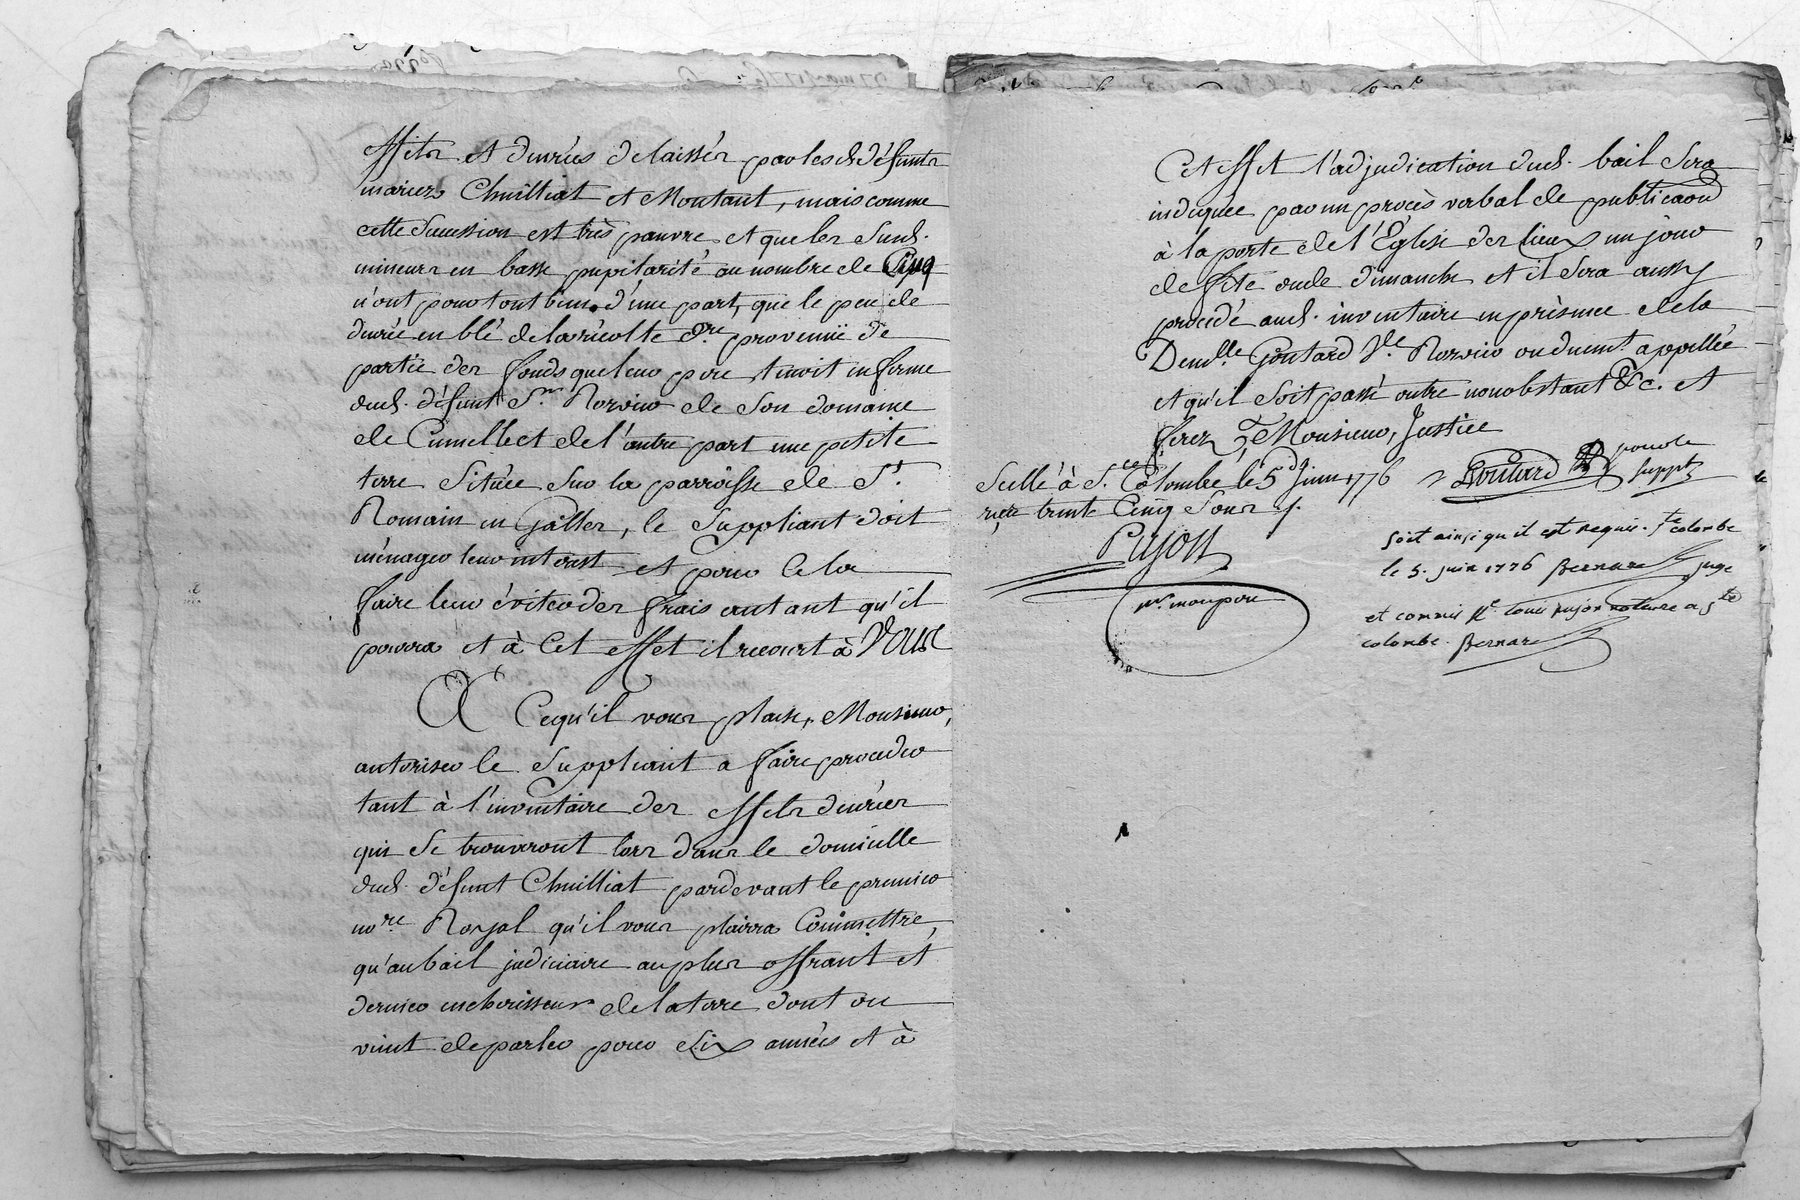 effets et denrées delaissés par lesd défunts
mariez Chuilliat et Montant, mais comme
cette succession est très pauvre et que les susd.
mineurs en basse pupilarité au nombre de Cinq
n'ont pour tout bien, d'une part, que le peu de
denrée en blé de la récolte d.re provenüe de
partie des fonds que leur pere tenoit en ferme
dud. défunt S.r Rozier de Son domaine
de et de l'autre part une petite
terre Située Sur la parroisse de S.t
Romain en Galles, le Suppliant doit
ménager leur interest et pour Cela
faire leur éviter des frais autant qu'il
pourra et à Cet effet il recourt à Vous
A Ce qu'il vous plaise, Monsieur,
autoriser le Suppliant a faire proceder
tant à l'inventaire des effets denrées
qui Se trouveront lors dans le domicille
dud. défunt Chuilliat pardevant le premier
no.re Royal qu'il vous plairra Commettre,
qu'au bail judiciaire au plus offrant et
dernier encherisseur de la terre dont on
vient de parler pour Six années et à
Cet effet l'adjudication dud. bail Sera
indiquée par un procès verbal de publicaõn
à la porte de l'Église des lieux un jour
de fête ou de dimanche et il Sera aussy
procédé aud. inventaire en présence de la
Dem.lle Goutard V.e Rozier ou duem.t appellée
et qu'il soit passé outre nonobstant &c. et
ferez, Monsieur, Justice
Goutard pour le
Suppt
Scellé à S.te Colombe le 5 Juin 1776
reçu trente Cinq Sous
Pujon
soit ainsi qu'il est requis. Ste colombe
le 5. juin 1776 Bernard juge
et commis Me Louis pujon notaire a Ste
colombe. Bernard